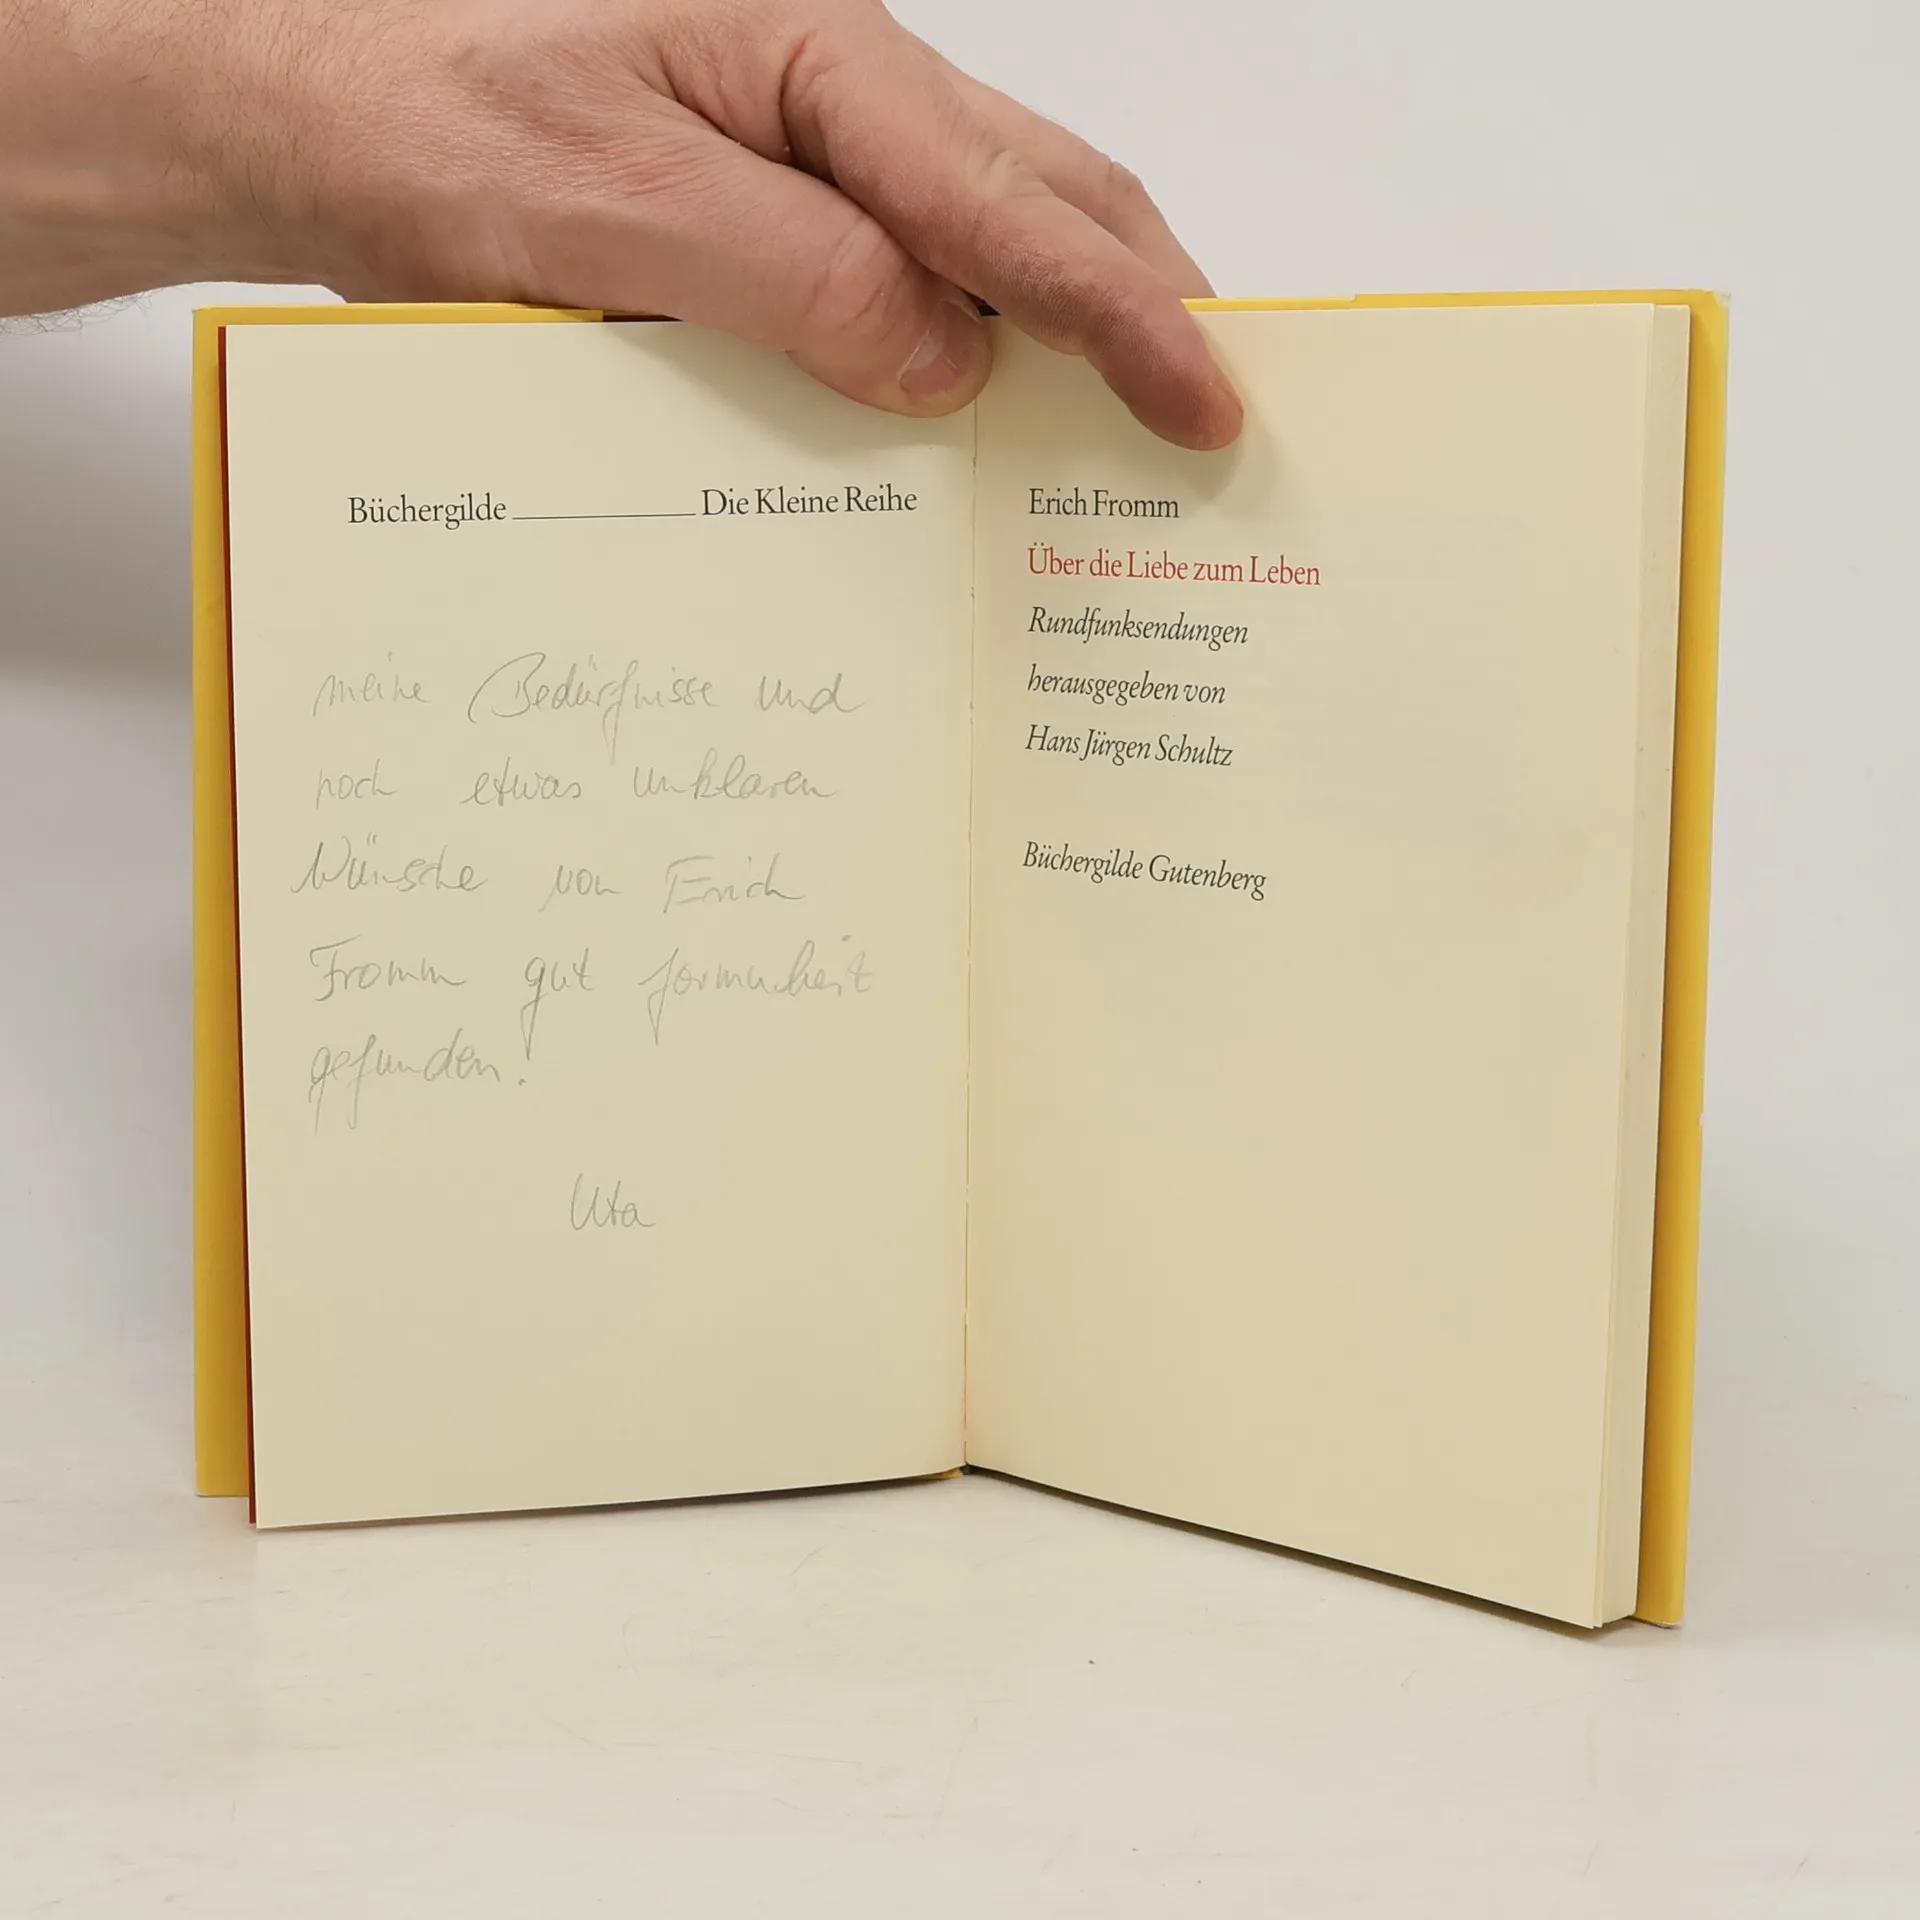 Büchergilde ________ Die Kleine Reihe
meine Bedürfnisse und
noch etwas unklaren
Wünsche von Erich
Fromm gut formuliert
gefunden!
Uta
Erich Fromm
Über die Liebe zum Leben
Rundfunksendungen
herausgegeben von
Hans Jürgen Schultz
Büchergilde Gutenberg